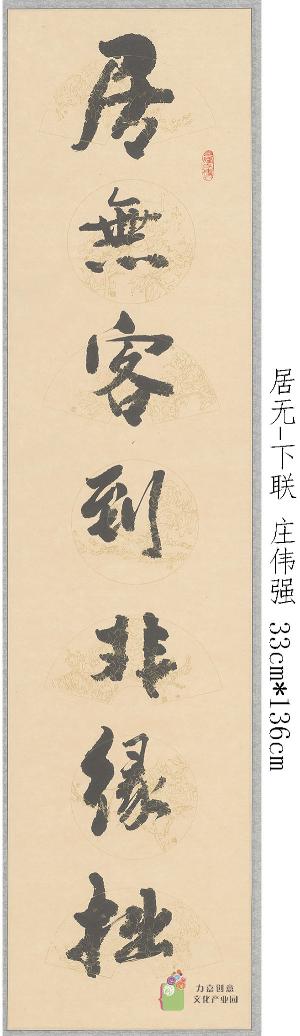 居無客到非緣拙
居无-下联 庄伟强 33cm*136cm
力嘉创意
文化产业园